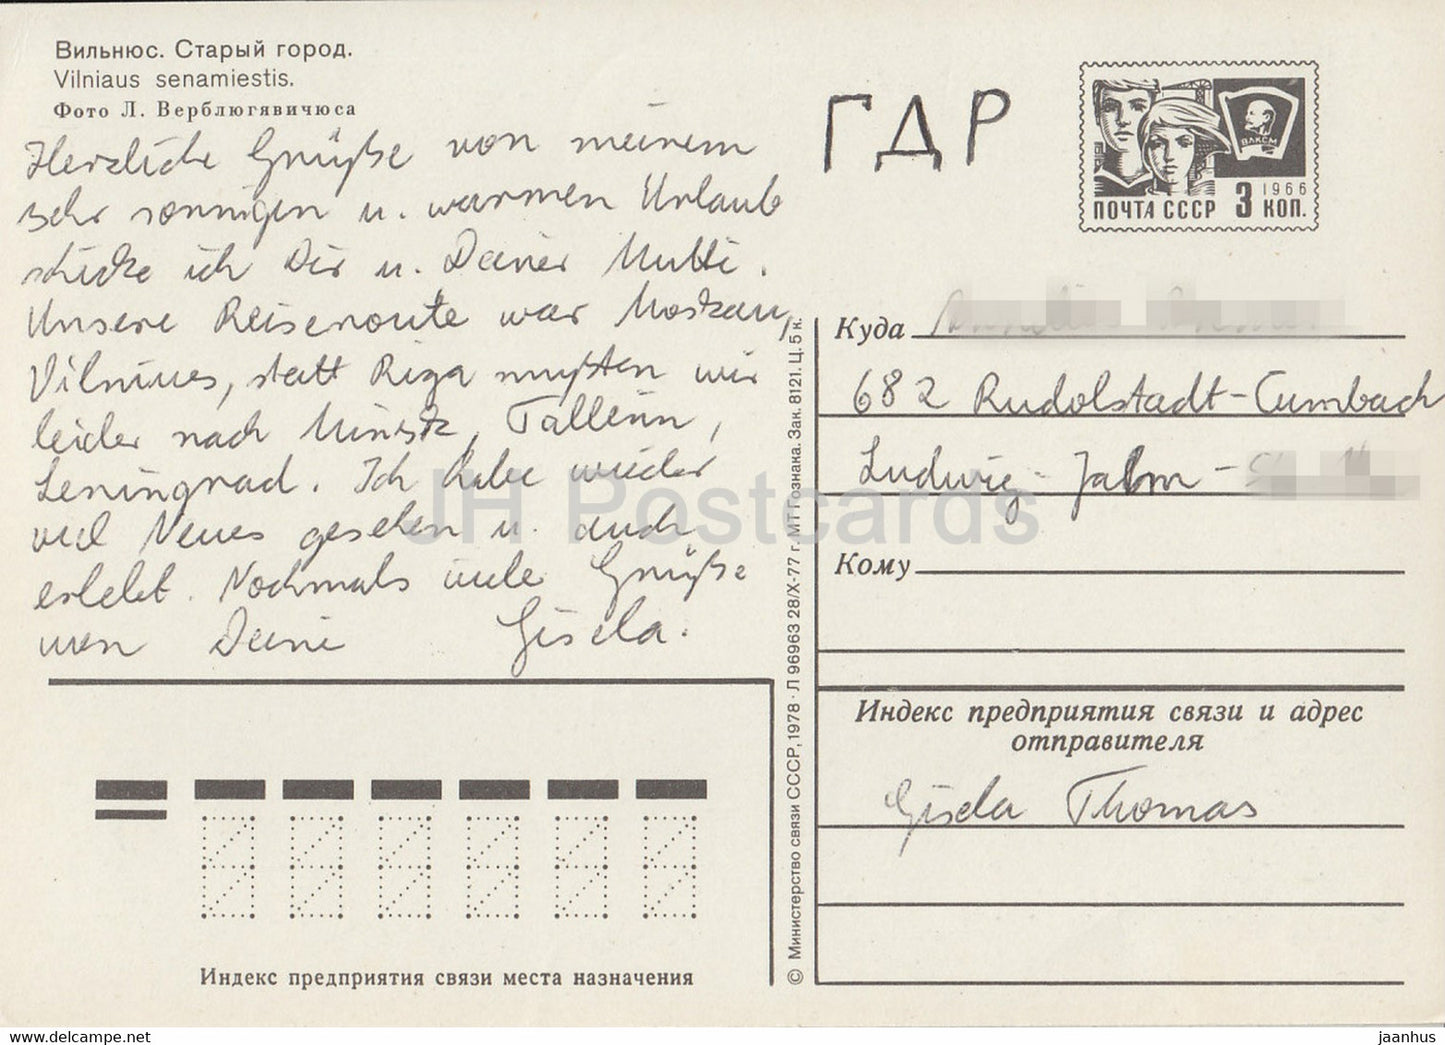 Вильнюс. Старый город.
Vilniaus senamiestis.
Фото Л. Верблюгявичюса
Herzliche Grüße von meinem
sehr sonnigen u. warmen Urlaub
schicke ich Dir u. Deiner Mutti.
Unsere Reiseroute war Moskau,
Vilnius, statt Riga mußten wir
leider nach Minsk, Tallinn,
Leningrad. Ich habe wieder
viel Neues gesehen u. auch
erlebt. Nochmals viele Grüße
von Deine Gisela.
ГДР
ВЛКСМ
1966
ПОЧТА СССР 3 КОП.
Куда
682 Rudolstadt-Cumbach
Ludwig-Jahn-
Кому
Индекс предприятия связи и адрес
отправителя
Gisela Thomas
© Министерство связи СССР, 1978 · Л 96963 28/X-77 г. МТ Гознака. Зак. 8121. Ц. 5 к.
Индекс предприятия связи места назначения
JH Postcards
www.delcampe.net
jaanhus